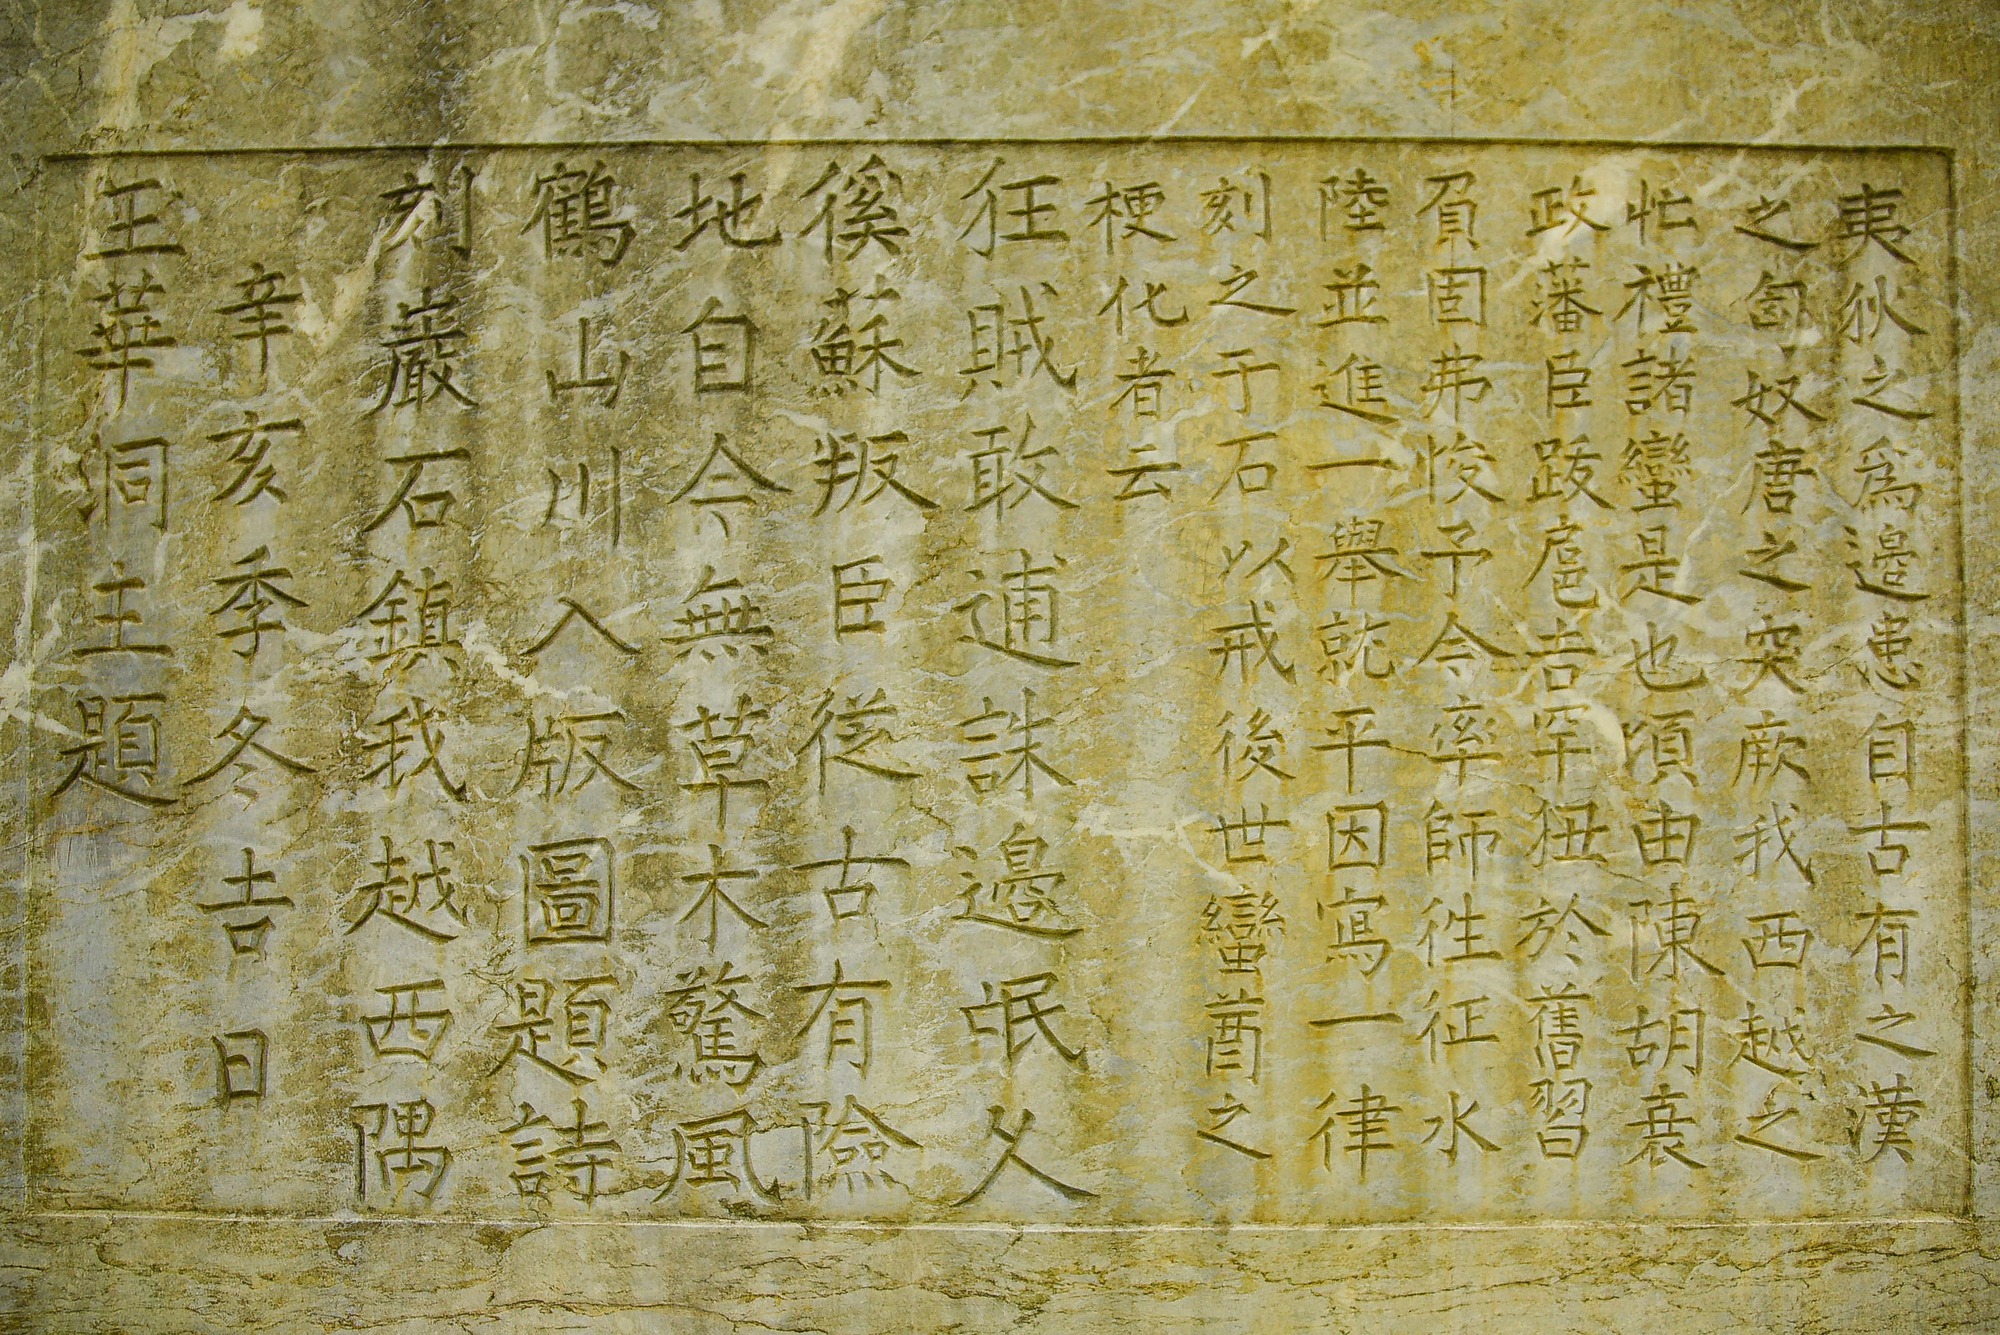 夷狄之爲邉患自古有之漢
之匈奴唐之突厥我西越之
忙禮諸蠻是也頃由陳胡衰
政藩臣跋扈吉罕狃於舊習
負固弗悛予令率師徃征水
陸並進一舉就平因寫一律
刻之于石以戒後世蠻酋之
梗化者云
狂賊敢逋誅邉氓久
徯蘇叛臣從古有險
地自今無草木驚風
鶴山川入版圖題詩
刻巖石鎮我越西隅
辛亥季冬吉日
玉華洞主題